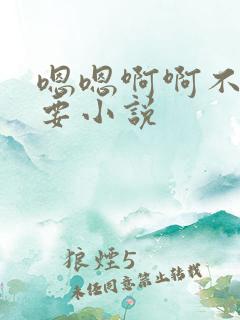 嗯嗯啊啊不
要小说
狼烟5
未经同意禁止转载